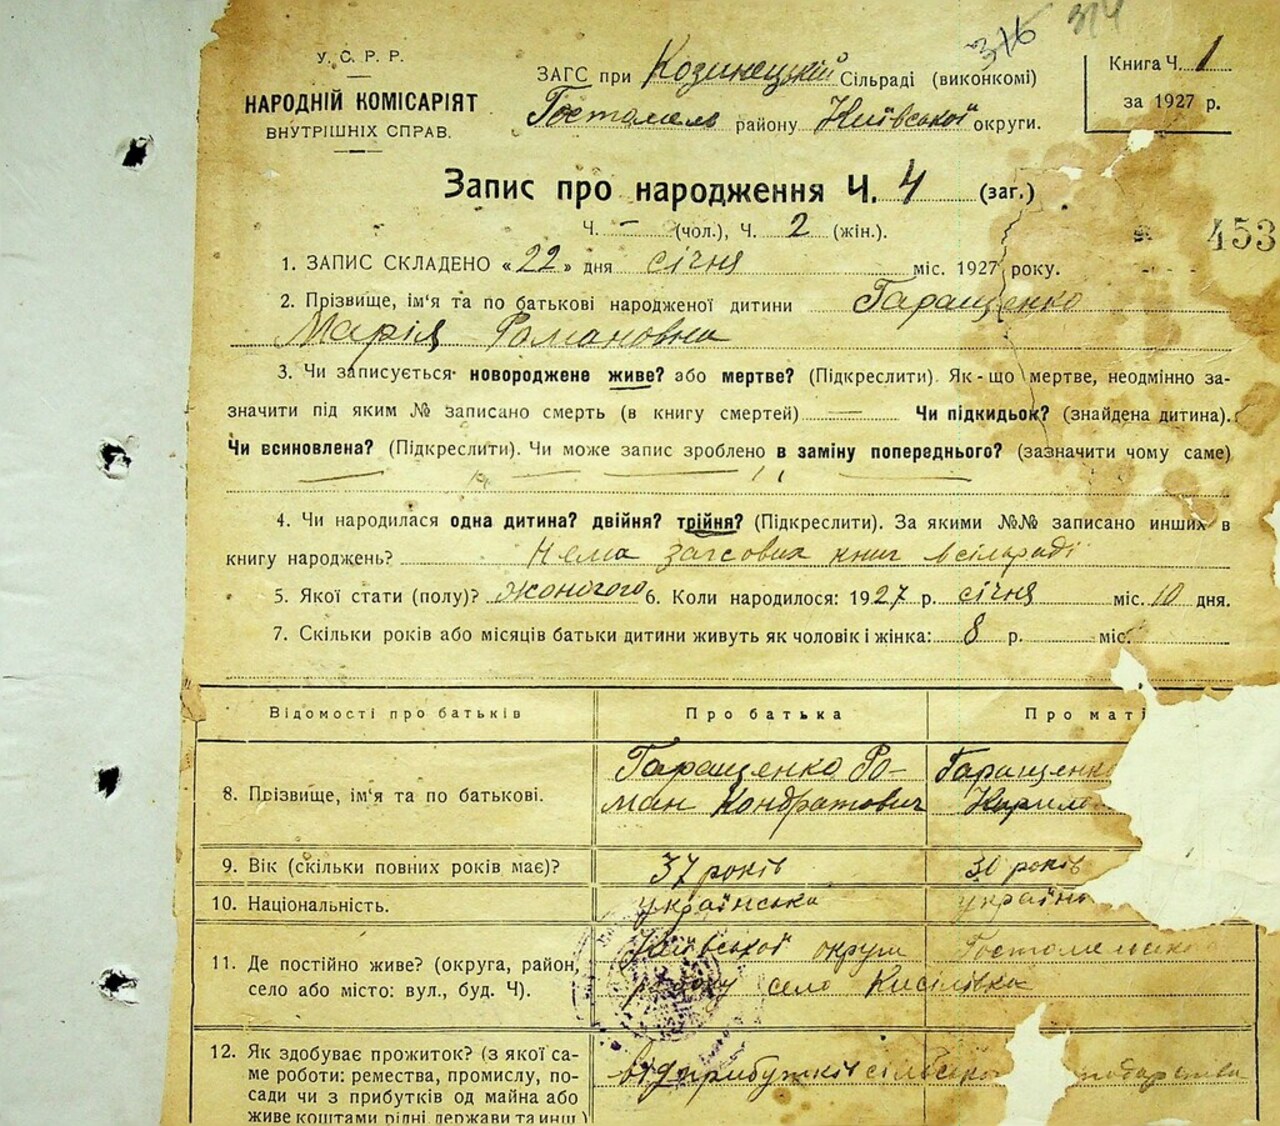 376 314
У. С. Р. Р.
НАРОДНІЙ КОМІСАРІЯТ
ВНУТРІШНІХ СПРАВ.
ЗАГС при Козинецькій Сільраді (виконкомі)
Гостомель району Київської округи.
Книга Ч. 1
за 1927 р.
Запис про народження Ч. 4 (заг.)
Ч. – (чол.), Ч. 2 (жін.).
453
1. ЗАПИС СКЛАДЕНО «22» дня січня міс. 1927 року.
2. Прізвище, ім'я та по батькові народженої дитини Гаращенко
Марія Романовна
3. Чи записується новороджене живе? або мертве? (Підкреслити). Як-що мертве, неодмінно за-
значити під яким № записано смерть (в книгу смертей) — Чи підкидьок? (знайдена дитина).
Чи всиновлена? (Підкреслити). Чи може запис зроблено в заміну попереднього? (зазначити чому саме)
4. Чи народилася одна дитина? двійня? трійня? (Підкреслити). За якими №№ записано инших в
книгу народжень? Нема загсових книг в сільраді
5. Якої стати (полу)? жіночого 6. Коли народилося: 1927 р. січня міс. 10 дня.
7. Скільки років або місяців батьки дитини живуть як чоловік і жінка: 8 р. міс.
Відомості про батьків Про батька Про маті
8. Прізвище, ім'я та по батькові. Гаращенко Ро- Гаращенко
ман Кондратович Кирил
9. Вік (скільки повних років має)? 37 років 30 років
10. Національність. українська україн
11. Де постійно живе? (округа, район, село або місто: вул., буд. Ч). Київської округи Гостомельсько
району село Кисілівка
12. Як здобуває прожиток? (з якої са-
ме роботи: ремества, промислу, по-
сади чи з прибутків од майна або
живе коштами рідні держави та инш.)
від прибутків сільсько подарства